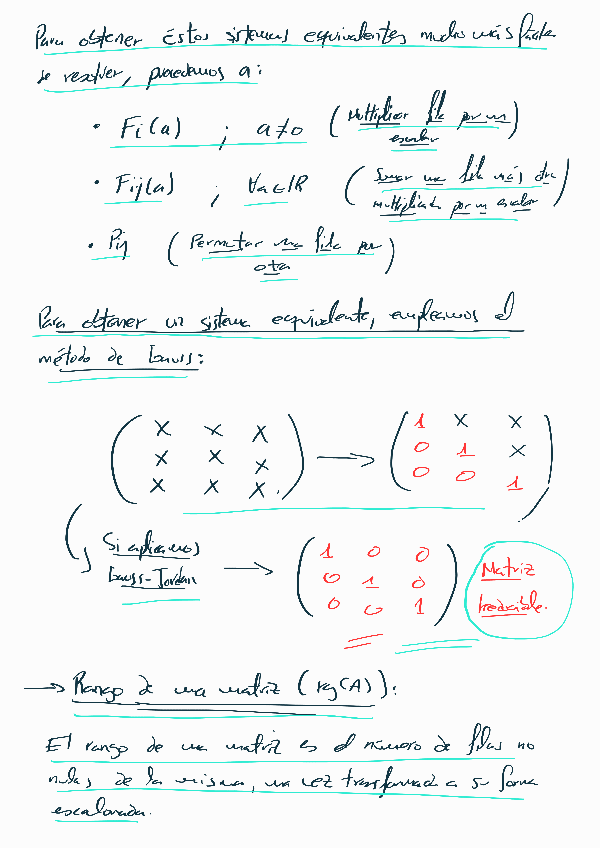 Para obtener éstos sistemas equivalentes mucho más fáciles
de resolver, procedemos a:
• Fi(a) ; a≠0 (Multiplicar fila por un
escalar)
• Fij(a) ; ∀a∈ℝ (Sumar una fila más otra
multiplicada por un escalar)
• Pij (Permutar una fila por
otra)
Para obtener un sistema equivalente, empleamos el
método de Gauss:
( X X X ) → ( 1 X X )
( X X X ) ( 0 1 X )
( X X X ) ( 0 0 1 )
Si aplicamos
Gauss-Jordan →
( 1 0 0 )
( 0 1 0 )
( 0 0 1 )
Matriz
Irreducible.
→ Rango de una matriz (rg(A)):
El rango de una matriz es el número de filas no
nulas de la misma, una vez transformada a su forma
escalonada.